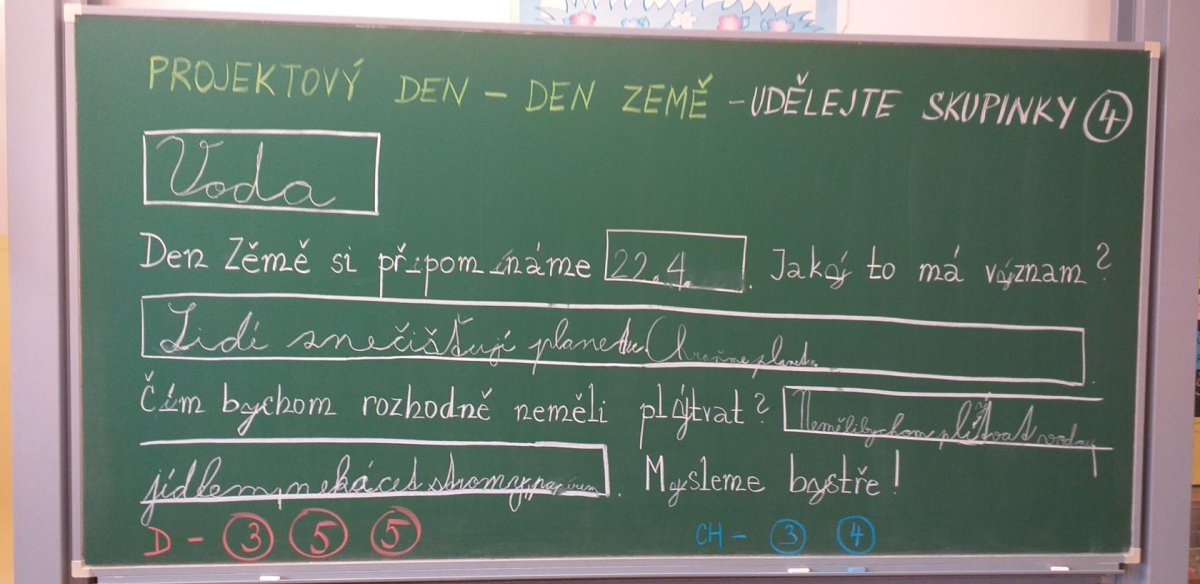 PROJEKTOVÝ DEN - DEN ZEMĚ - UDĚLEJTE SKUPINKY 4
Voda
Den Země si připomínáme 22.4. Jaký to má význam?
Lidé znečišťují planetu Chraňme planetu.
Čím bychom rozhodně neměli plýtvat? Neměli bychom plítvat vodou,
jídlem, nekácet stromy, papírem. Mysleme bystře!
D - 3 5 5 CH - 3 4